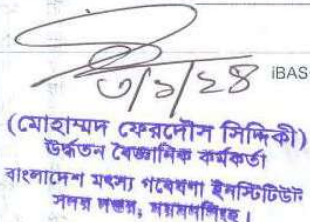 ৩/১/২৪ iBAS
(মোহাম্মদ ফেরদৌস সিদ্দিকী)
ঊর্দ্ধতন বৈজ্ঞানিক কর্মকর্তা
বাংলাদেশ মৎস্য গবেষণা ইনস্টিটিউট
সদর দপ্তর, ময়মনসিংহ।